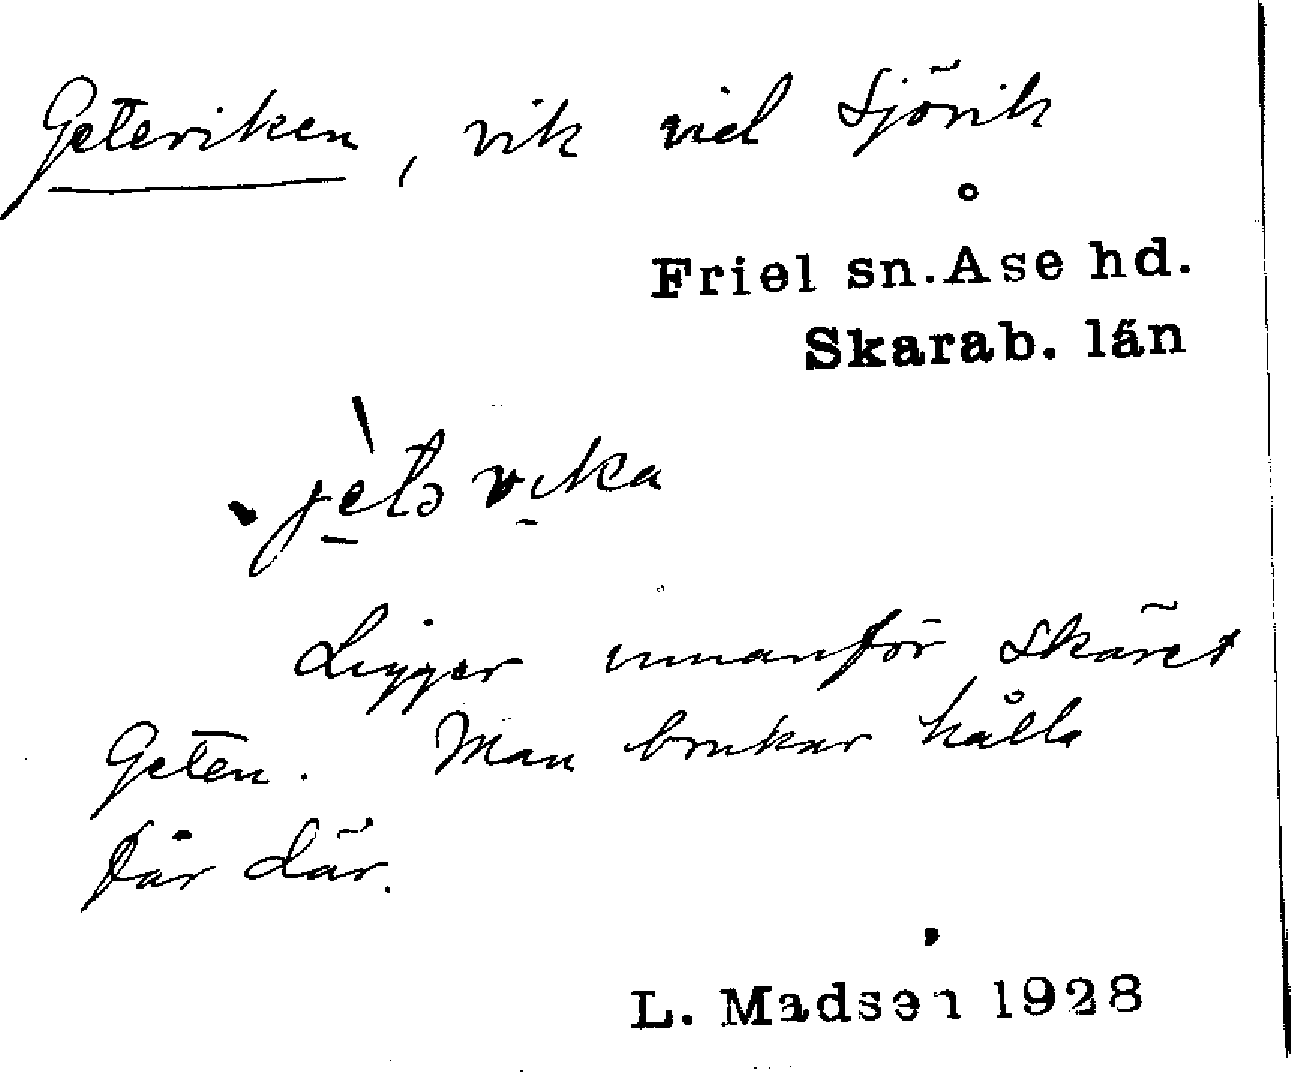 Geteviken, vik vid Sjövik
Friel sn. Åse hd.
Skarab. län
jètə vika
Ligger innanför skäret
Geten. Man brukar hålla
får där.
L. Madsen 1928